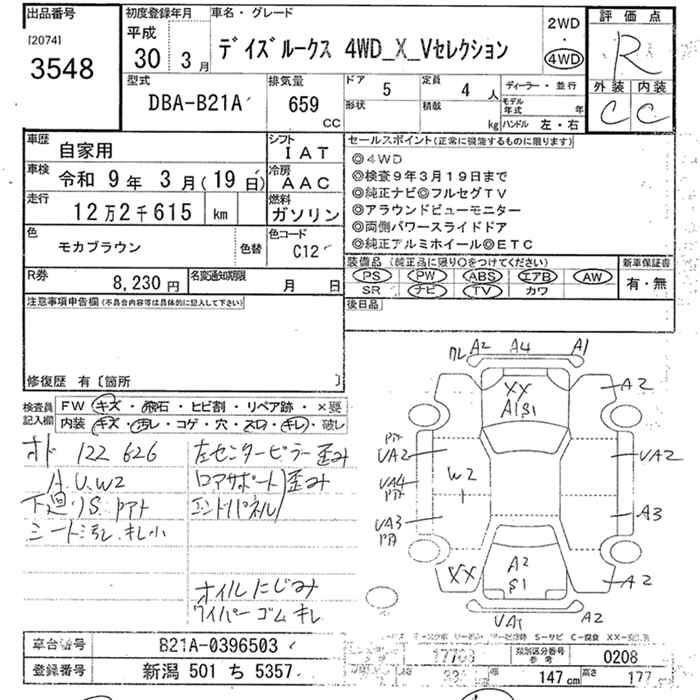 出品番号
[2074]
3548
初度登録年月
平成
30年 3月
車名・グレード
デイズルークス 4WD_X_Vセレクション
2WD
・
4WD
評価点
R
外装 内装
C C
型式
DBA-B21A
排気量
659
CC
ドア 5
形状
定員 4人
積載 kg
ディーラー・並行
モデル年式 年
ハンドル 左・右
車歴
自家用
シフト
IAT
車検
令和 9年 3月(19日)
冷房
AAC
走行
12万2千615 km
燃料
ガソリン
色
モカブラウン
色替
色コード
C12
R券
8,230円
名変通知期限
月 日
セールスポイント(正常に機能するものに限ります)
◎4WD
◎検査9年3月19日まで
◎純正ナビ◎フルセグTV
◎アラウンドビューモニター
◎両側パワースライドドア
◎純正アルミホイール◎ETC
装備品(純正品に限り○をつけてください)
PS PW ABS エアB AW
SR ナビ TV カワ
新車保証書
有・無
後日品
注意事項申告欄(不具合内容等は具体的に記入して下さい)
修復歴 有〔箇所 〕
検査員記入欄
FW キズ・飛石・ヒビ割・リペア跡・×要
内装 キズ・汚レ・コゲ・穴・スレ・キレ・破レ
オド 122626
小U.W2
下廻リS
シート汚レ.キレ小
左センターピラー歪み
コアサポート歪み
エンドパネル
オイルにじみ
ワイパーゴムキレ
A2 A4 A1
XX
A1S1
A2
UA2
W2
UA2
UA4
UA3
A3
XX
A2
S1
A2
UA1
A2
車台番号
B21A-0396503
登録番号
新潟 501 ち 5357
類別区分番号
参考
0208
147cm
高さ
177